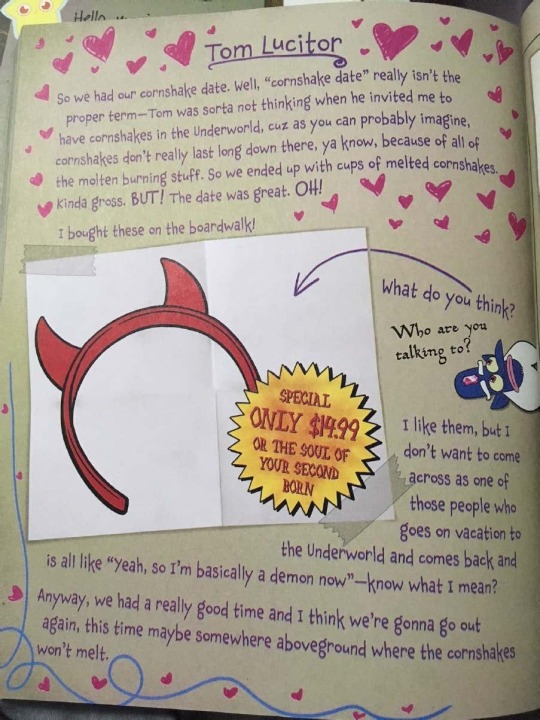 Hello
Tom Lucitor
So we had our cornshake date. Well, "cornshake date" really isn't the
proper term—Tom was sorta not thinking when he invited me to
have cornshakes in the Underworld, cuz as you can probably imagine,
cornshakes don't really last long down there, ya know, because of all of
the molten burning stuff. So we ended up with cups of melted cornshakes.
Kinda gross. BUT! The date was great. OH!
I bought these on the boardwalk!
What do you think?
Who are you
talking to?
SPECIAL
ONLY $14.99
OR THE SOUL OF
YOUR SECOND
BORN
I like them, but I
don't want to come
across as one of
those people who
goes on vacation to
the Underworld and comes back and
is all like "Yeah, so I'm basically a demon now"—know what I mean?
Anyway, we had a really good time and I think we're gonna go out
again, this time maybe somewhere aboveground where the cornshakes
won't melt.